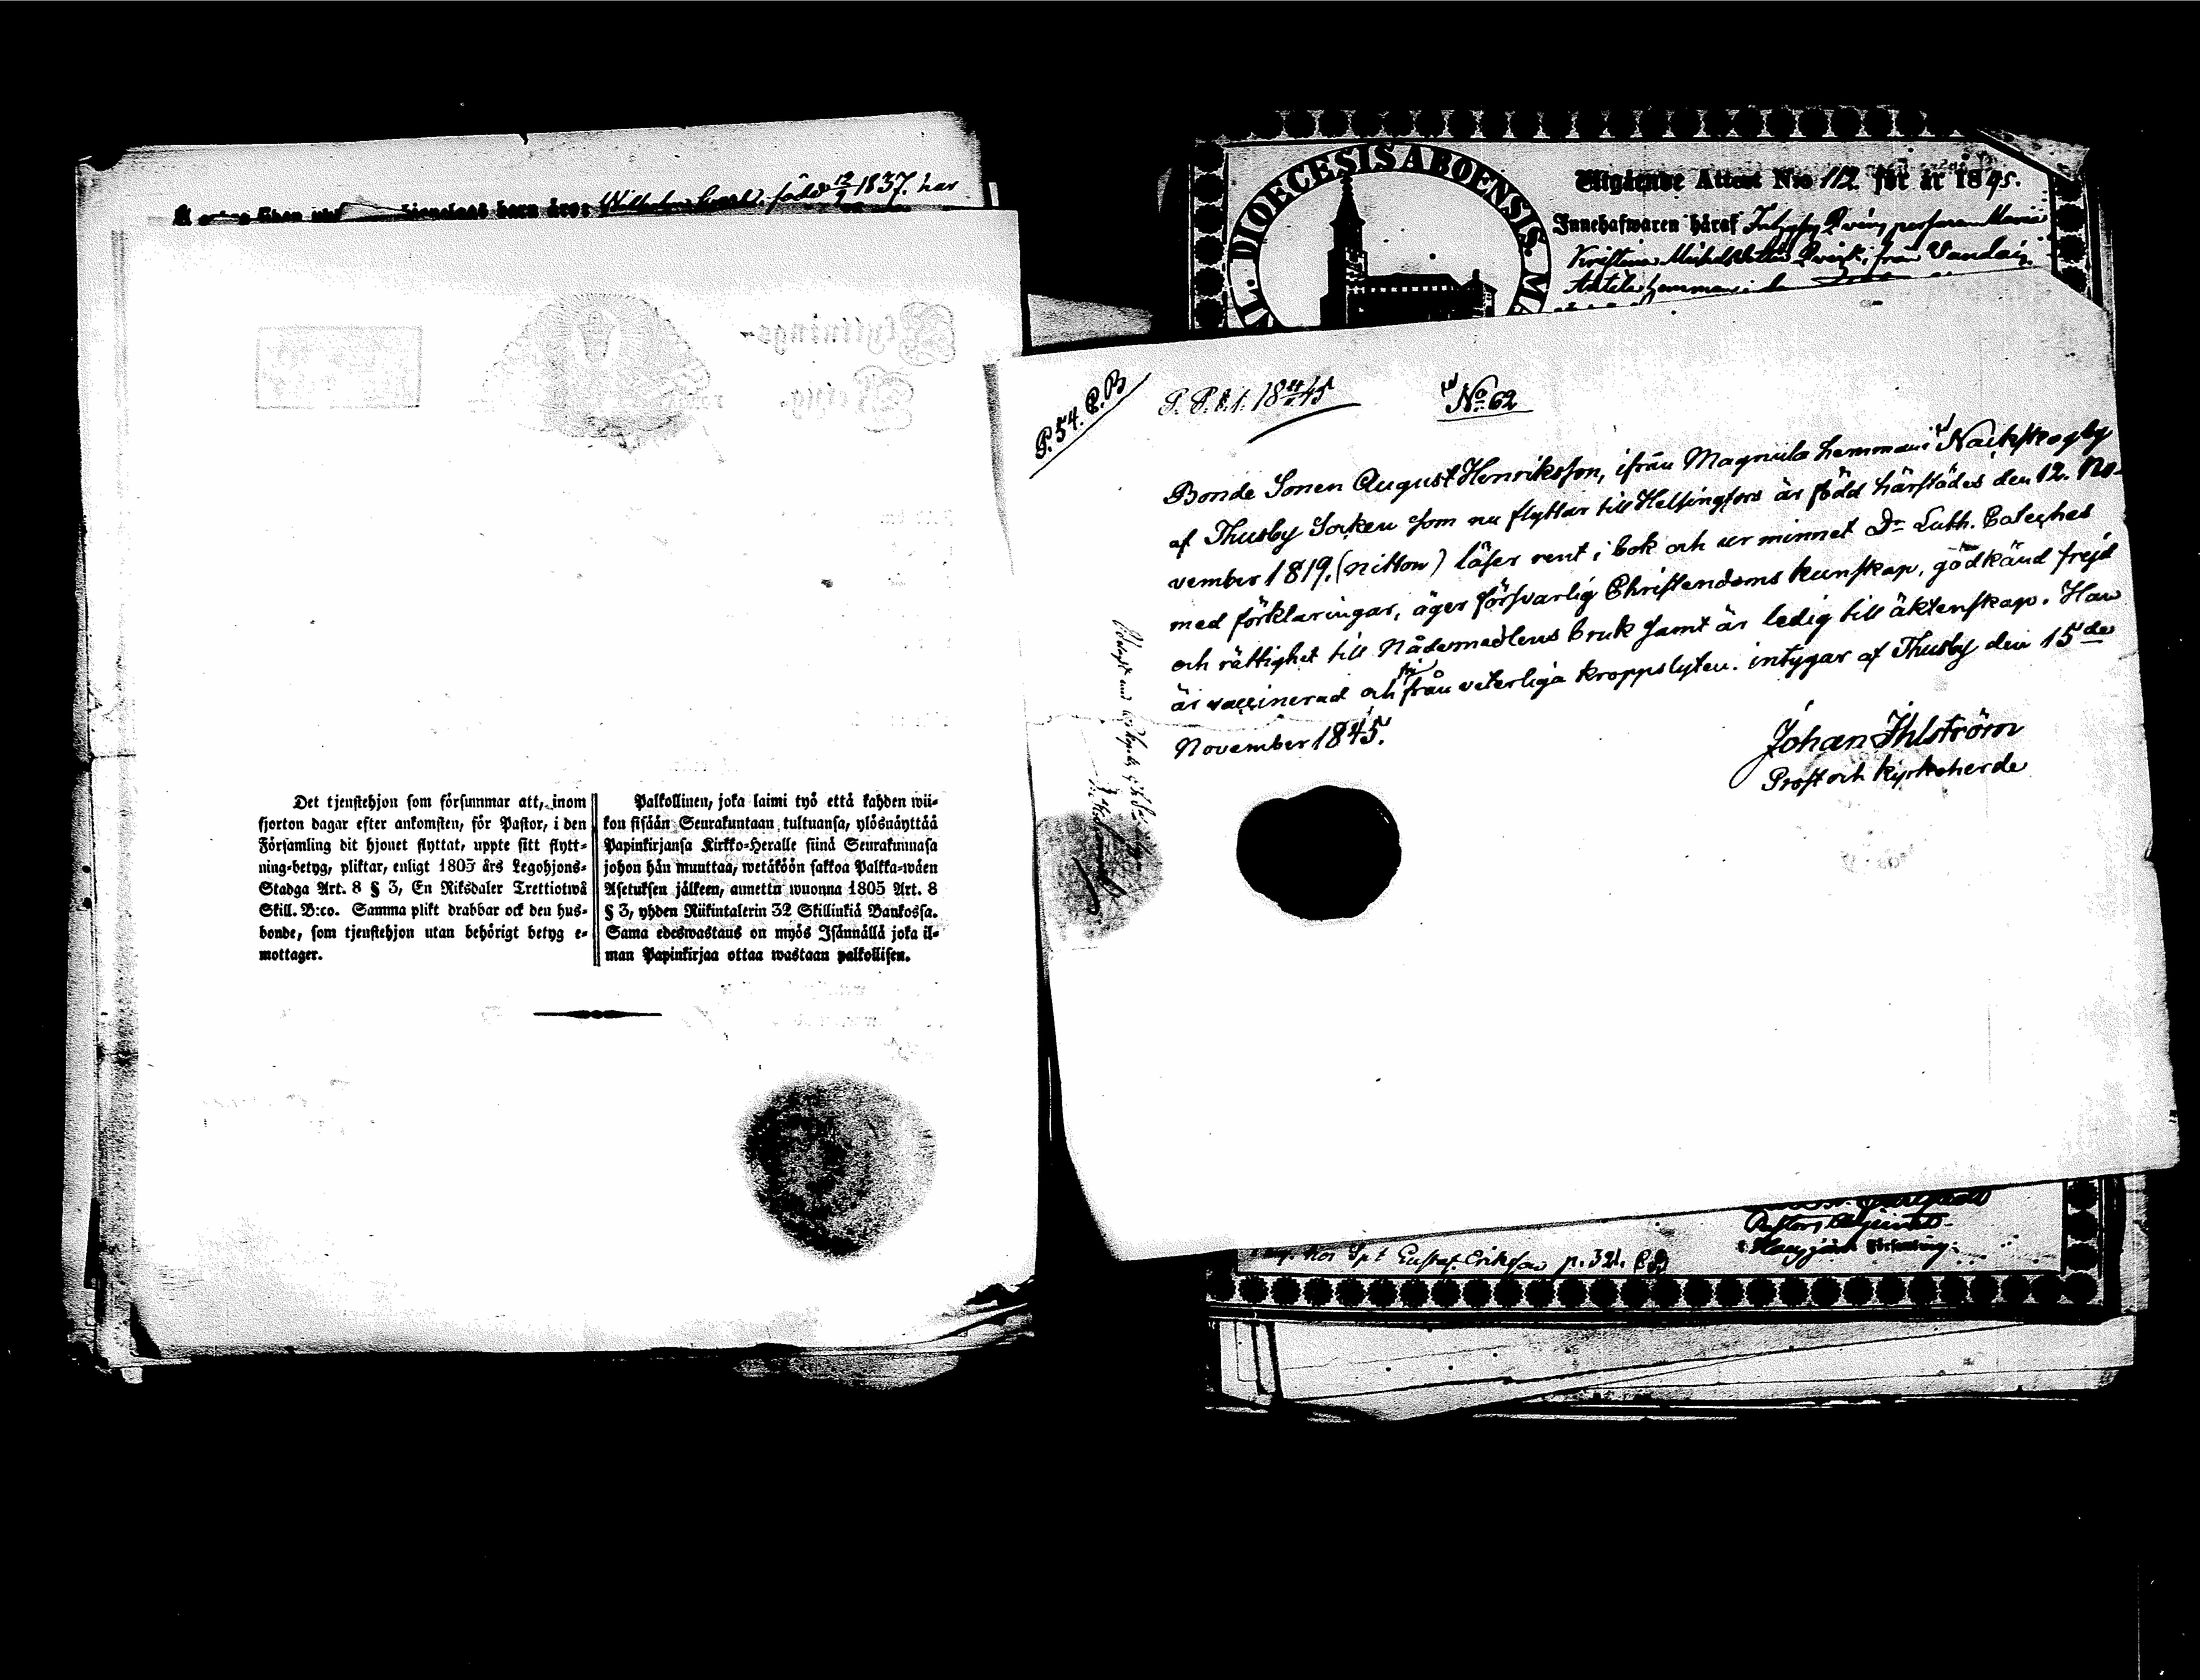 Wilhelm född 12/9 1837. har
Det tjenstehjon som försummar att, inom
fjorton dagar efter ankomsten, för Pastor, i den
Församling dit hjonet flyttat, uppte sitt flytt-
ning-betyg, pliktar, enligt 1805 års Legohjons-
Stadga Art. 8 § 3, En Riksdaler Trettiotwå
Skill. B:co. Samma plikt drabbar ock den hus-
bonde, som tjenstehjon utan behörigt betyg e-
mottager.
Palkollinen, joka laimi lyö että kahden wii-
kon sisään Seurakuntaan tultuansa, ylösnäyttää
Papinkirjansa Kirkko-Heralle siinä Seurakunnasa
johon hän muuttaa, wetäköön sakkoa Palkka-wäen
Asetuksen jälkeen, annettu wuonna 1805 Art. 8
§ 3, yhden Riikintalerin 32 Skillinkiä Bankossa.
Sama edeswastaus on myös Isännällä joka il-
man Papinkirjaa ottaa wastaan palkollisen.
DIOECESIS ABOENSIS.
Utgående Attest N:o 112 för år 1895.
Innehafwaren häraf
Kristina från Vanda
P. 54. C. B
No 62
Bonde Sonen August Henriksson, ifrån Magnula hemman i Nackskogby
af Thusby Socken som nu flyttar till Helsingfors är född härstädes den 12. No-
vember 1819, (nitton) läser rent i bok och ur minnet Dr Luth. Cateches
med förklaringar, äger försvarlig Christendoms kunskap, godkänd frejd
och rättighet till Nådemedlens bruk samt är ledig till äktenskap. Han
är vaccinerad och fri från veterliga kroppslyten. intygar af Thusby den 15de
November 1845.
Johan Ihlström
Prost och Kyrkoherde
Gustaf Erikson p. 321.